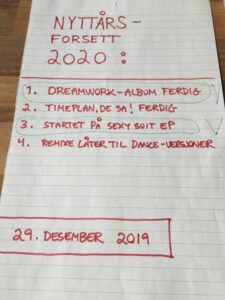 NYTTÅRS-
FORSETT
2020:
1. DREAMWORK-ALBUM FERDIG
2. TIMEPLAN, DE SA! FERDIG
3. STARTET PÅ SEXY SUIT EP
4. REMIXE LÅTER TIL DANCE-VERSJONER
29. DESEMBER 2019